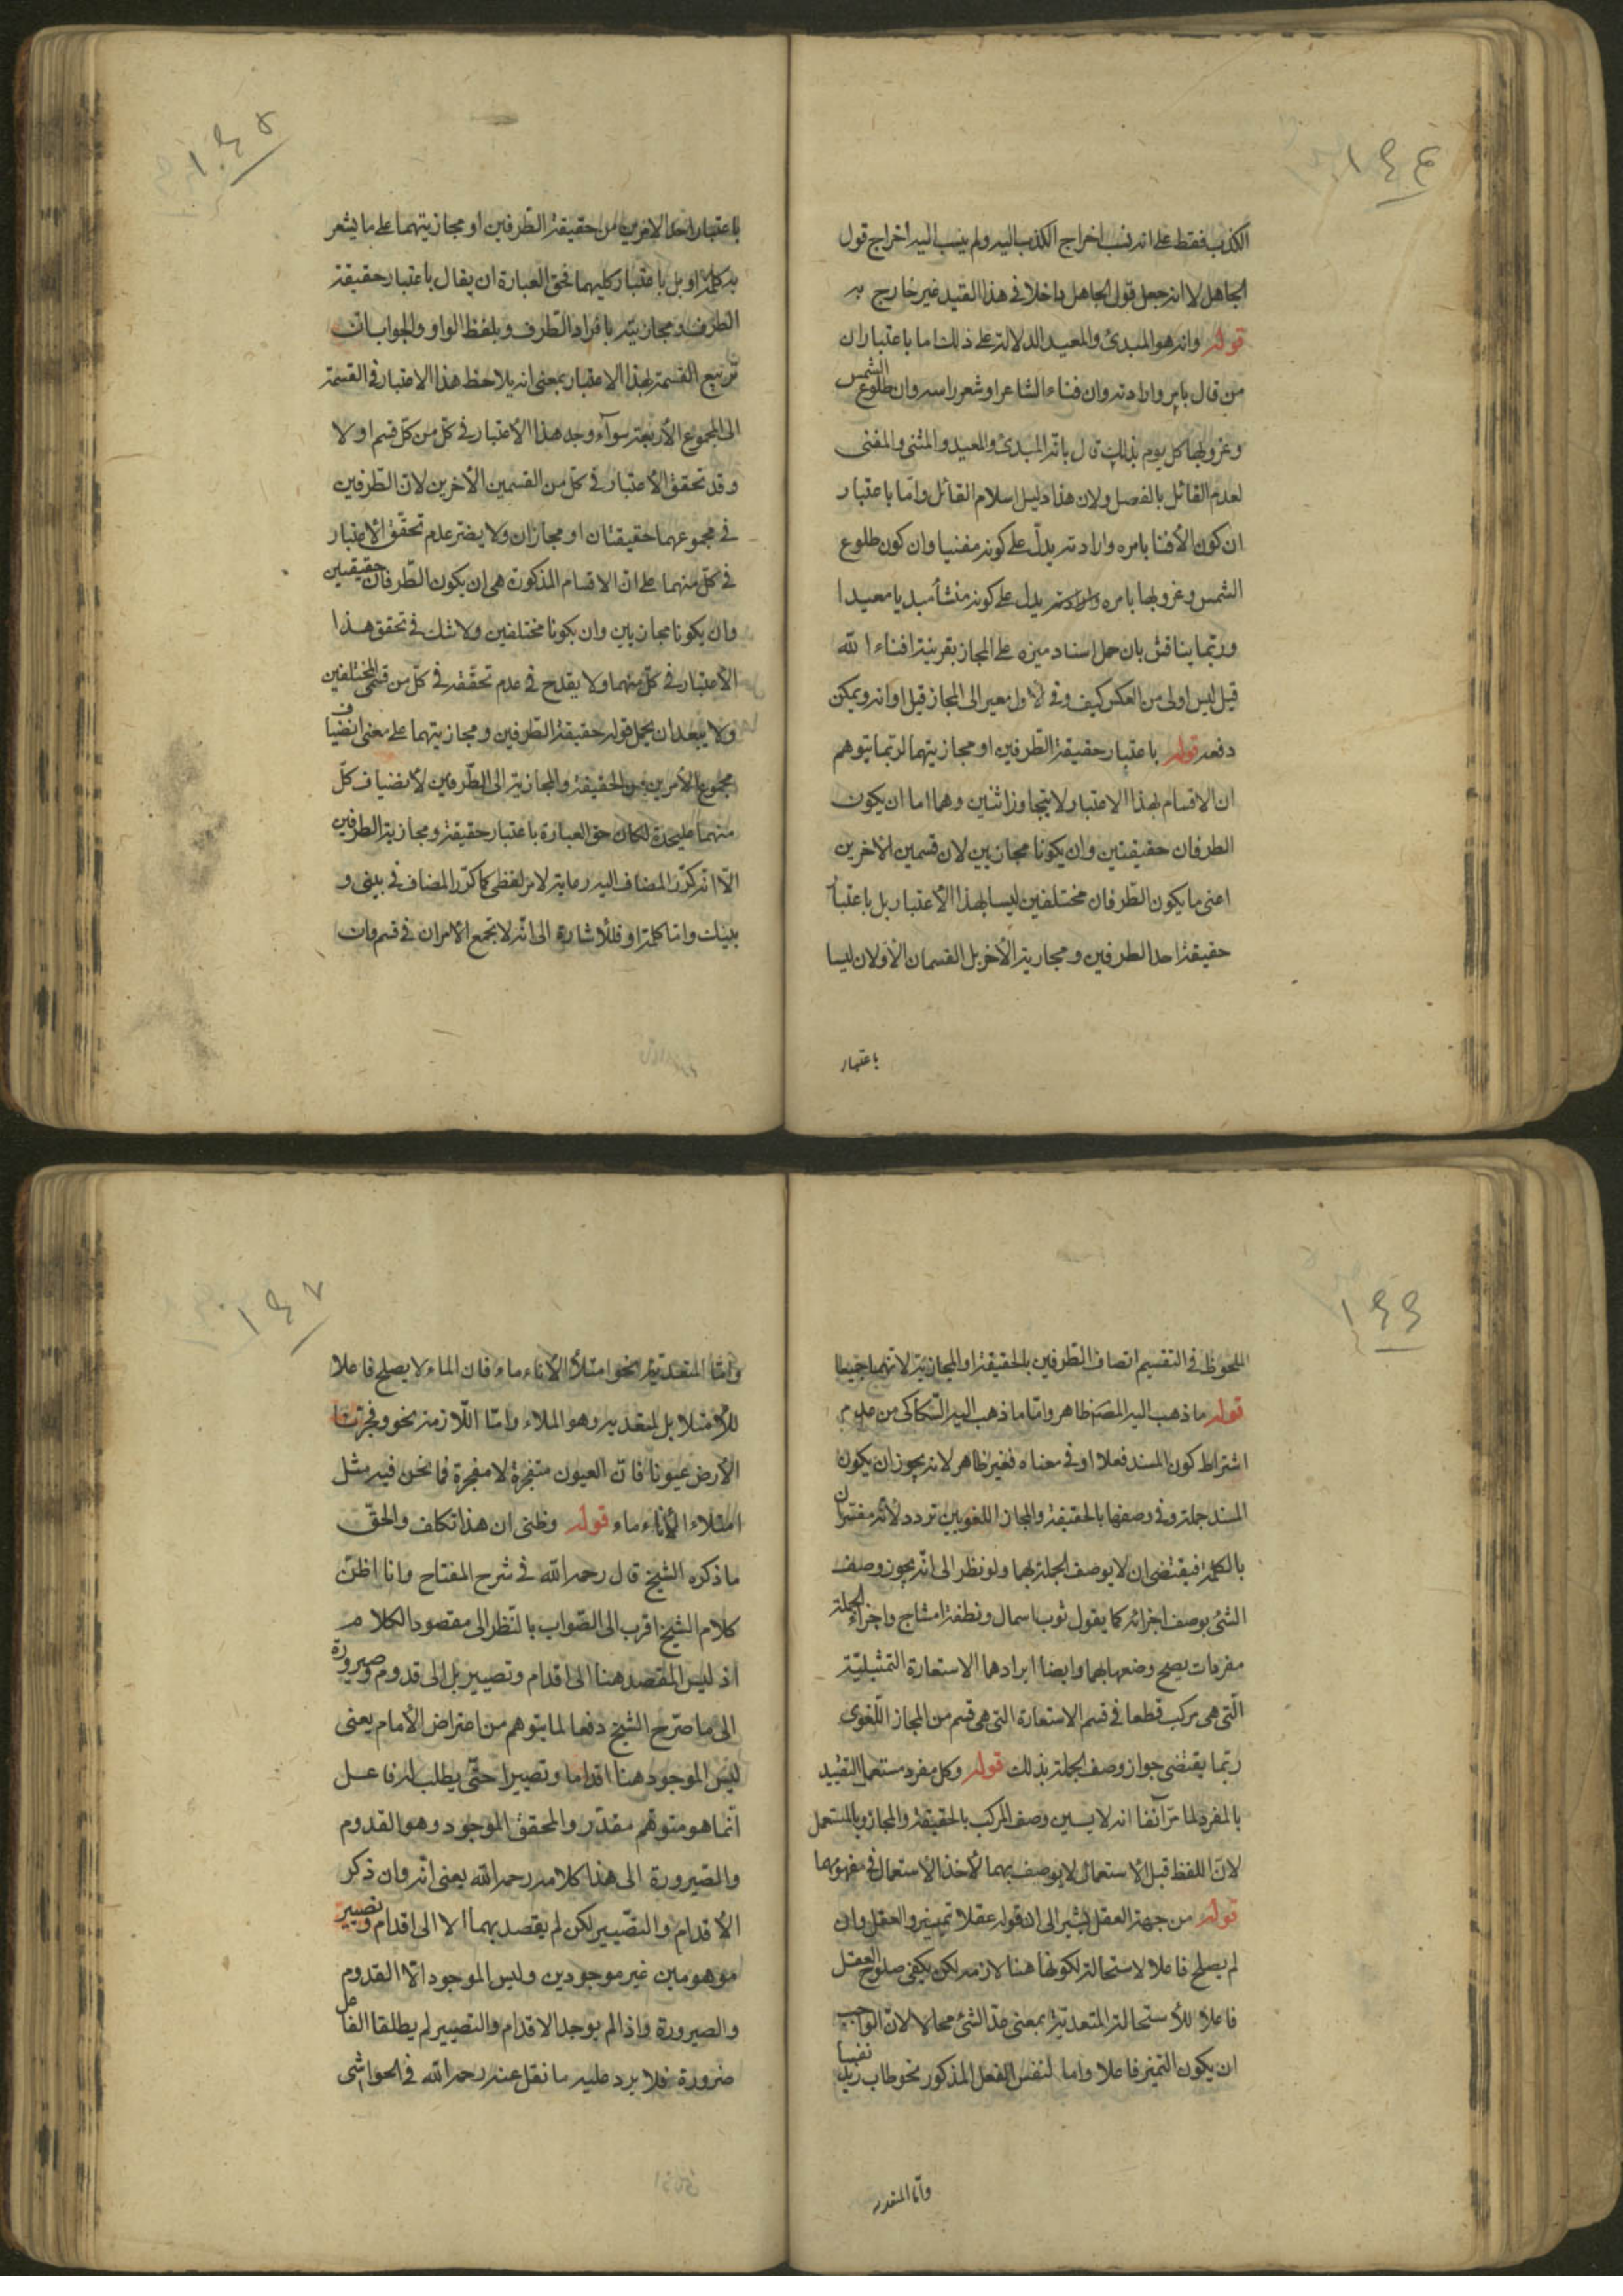 ١٤٤
الكذب فقط على انه نسب اخراج الكذب اليه ولم ينسب اليه اخراج قول
الجاهل لا انه جعل قول الجاهل داخلا فى هذا القيد غير خارج به
قوله وانه هو المبدئ والمعيد الدلالة على ذلك اما باعتبار ان
من قال بامره وارادته وان فناء الشاعر او شعر راسه وان طلوع الشمس
وغروبها كل يوم بذلك قال بانه المبدئ والمعيد والمنشى والمفنى
لعدم القائل بالفصل ولان هذا دليل اسلام القائل واما باعتبار
ان كون الافنا بامره وارادته يدل على كونه مفنيا وان كون طلوع
الشمس وغروبها بامره وارادته يدل على كونه منشأ مبديا معيدا
وربما يناقش بان حمل اسناد ميزه على المجاز بقرينة افناء الله
قيل ليس اولى من العكس كيف وفى الاول مصير الى المجاز قبل اوانه ويمكن
دفعه قوله باعتبار حقيقة الطرفين او مجازيتهما لربما يتوهم
ان الاقسام بهذا الاعتبار لا يتجاوز اثنين وهما اما ان يكون
الطرفان حقيقتين وان يكونا مجازيين لان قسمين الاخرين
اعنى ما يكون الطرفان مختلفين ليسا بهذا الاعتبار بل باعتبار
حقيقة احد الطرفين ومجازية الاخر بل القسمان الاولان ليسا
باعتبار
١٤٥
باعتبار احد الامرين من حقيقة الطرفين او مجازيتهما على ما يشعر
به كلمة او بل باعتبار كليهما فحق العبارة ان يقال باعتبار حقيقة
الطرف ومجازيته بافراد الطرف وبلفظ الواو والجواب ان
تربيع القسمة بهذا الاعتبار بمعنى انه يلاحظ هذا الاعتبار فى القسمة
الى المجموع الاربعة سواء وجد هذا الاعتبار فى كل من كل قسم او لا
وقد تحقق الاعتبار فى كل من القسمين الاخرين لان الطرفين
فى مجموعهما حقيقتان او مجازان ولا يضر عدم تحقق الاعتبار
فى كل منهما على ان الاقسام المذكورة هى ان يكون الطرفان حقيقيين
وان يكونا مجازيين وان يكونا مختلفين ولا شك فى تحقق هذا
الاعتبار فى كل منهما ولا يقدح فى عدم تحققه فى كل من قسمى المختلفين
ولا يبعد ان يحمل قوله حقيقة الطرفين ومجازيتهما على معنى انضياف
مجموع الامرين من الحقيقة والمجازية الى الطرفين لا نضياف كل
منهما عليحدة لكان حق العبارة باعتبار حقيقة ومجازية الطرفين
الا انه كرر المضاف اليه رعاية لامر لفظى كما كرر المضاف فى بينى و
بينك واما كلمة او فللاشارة الى انه لا يجمع الامران فى قسم وان
١٤٦
الملحوظ فى التقسيم اتصاف الطرفين بالحقيقة او المجازية لانهما جميعا
قوله ما ذهب اليه المصنف ظاهر واما ما ذهب اليه السكاكى من عدم
اشتراط كون المسند فعلا او فى معناه فغير ظاهر لانه يجوز ان يكون
المسند جملة وفى وصفها بالحقيقة والمجاز اللغويين تردد لانه مفتران
بالكلمة فيقتضى ان لا يوصف الجملة بهما ولو نظر الى انه يجوز وصف
الشئ بوصف اجزائه كما يقول ثوب اسمال ونطفة امشاج واجزاء الجملة
مفردات يصح وضعها بهما وايضا ايرادها الاستعارة التمثيلية
التى هى مركب قطعا فى قسم الاستعارة التى هى قسم من المجاز اللغوى
ربما يقتضى جواز وصف الجملة بذلك قوله وكل مفرد مستعمل التقييد
بالمفرد لما مر آنفا انه لا يسين وصف المركب بالحقيقة والمجاز وبالمستعمل
لان اللفظ قبل الاستعمال لا يوصف بهما لاخذ الاستعمال فى مفهومهما
قوله من جهة العقل يشير الى ان قوله عقلا تمييز والعقل وان
لم يصلح فاعلا لاستحالة لكونها هنا لازمه لكن يكفى صلوح العقل
فاعلا للاستحالة المتعدية بمعنى عد الشئ محالا لان الواجب
ان يكون التميز فاعلا واما لنفس الفعل المذكور نحو طاب زيد نفسا
واما المتعديه
١٤٧
واما المتعدية نحو امتلأ الاناء ماء فان الماء لا يصلح فاعلا
للامتلا بل لمتعديه وهو الملاء واما اللازمه نحو وفجرنا
الارض عيونا فان العيون متفجرة لا مفجرة فما نحن فيه مثل
امتلاء الاناء ماء قوله وظنى ان هذا تكلف والحق
ما ذكره الشيخ قال رحمه الله فى شرح المفتاح وانا اظن
كلام الشيخ اقرب الى الصواب بالنظر الى مقصود الكلام
اذ ليس المقصد هنا الى اقدام وتصيير بل الى قدوم وصيرورة
الى ما صرح الشيخ دفعا لما يتوهم من اعتراض الامام يعنى
ليس الموجود هنا اقداما وتصييرا حتى يطلب له فاعل
انما هو متوهم مقدر والمحقق الموجود وهو القدوم
والصيرورة الى هذا كلامه رحمه الله يعنى انه وان ذكر
الاقدام والتصيير لكن لم يقصد بهما الا الى اقدام وتصيير
موهومين غير موجودين وليس الموجود الا القدوم
والصيرورة واذا لم يوجد الاقدام والتصيير لم يطلقا الفاعل
ضرورة فلا يرد عليه ما نقل عنه رحمه الله فى الحواشى